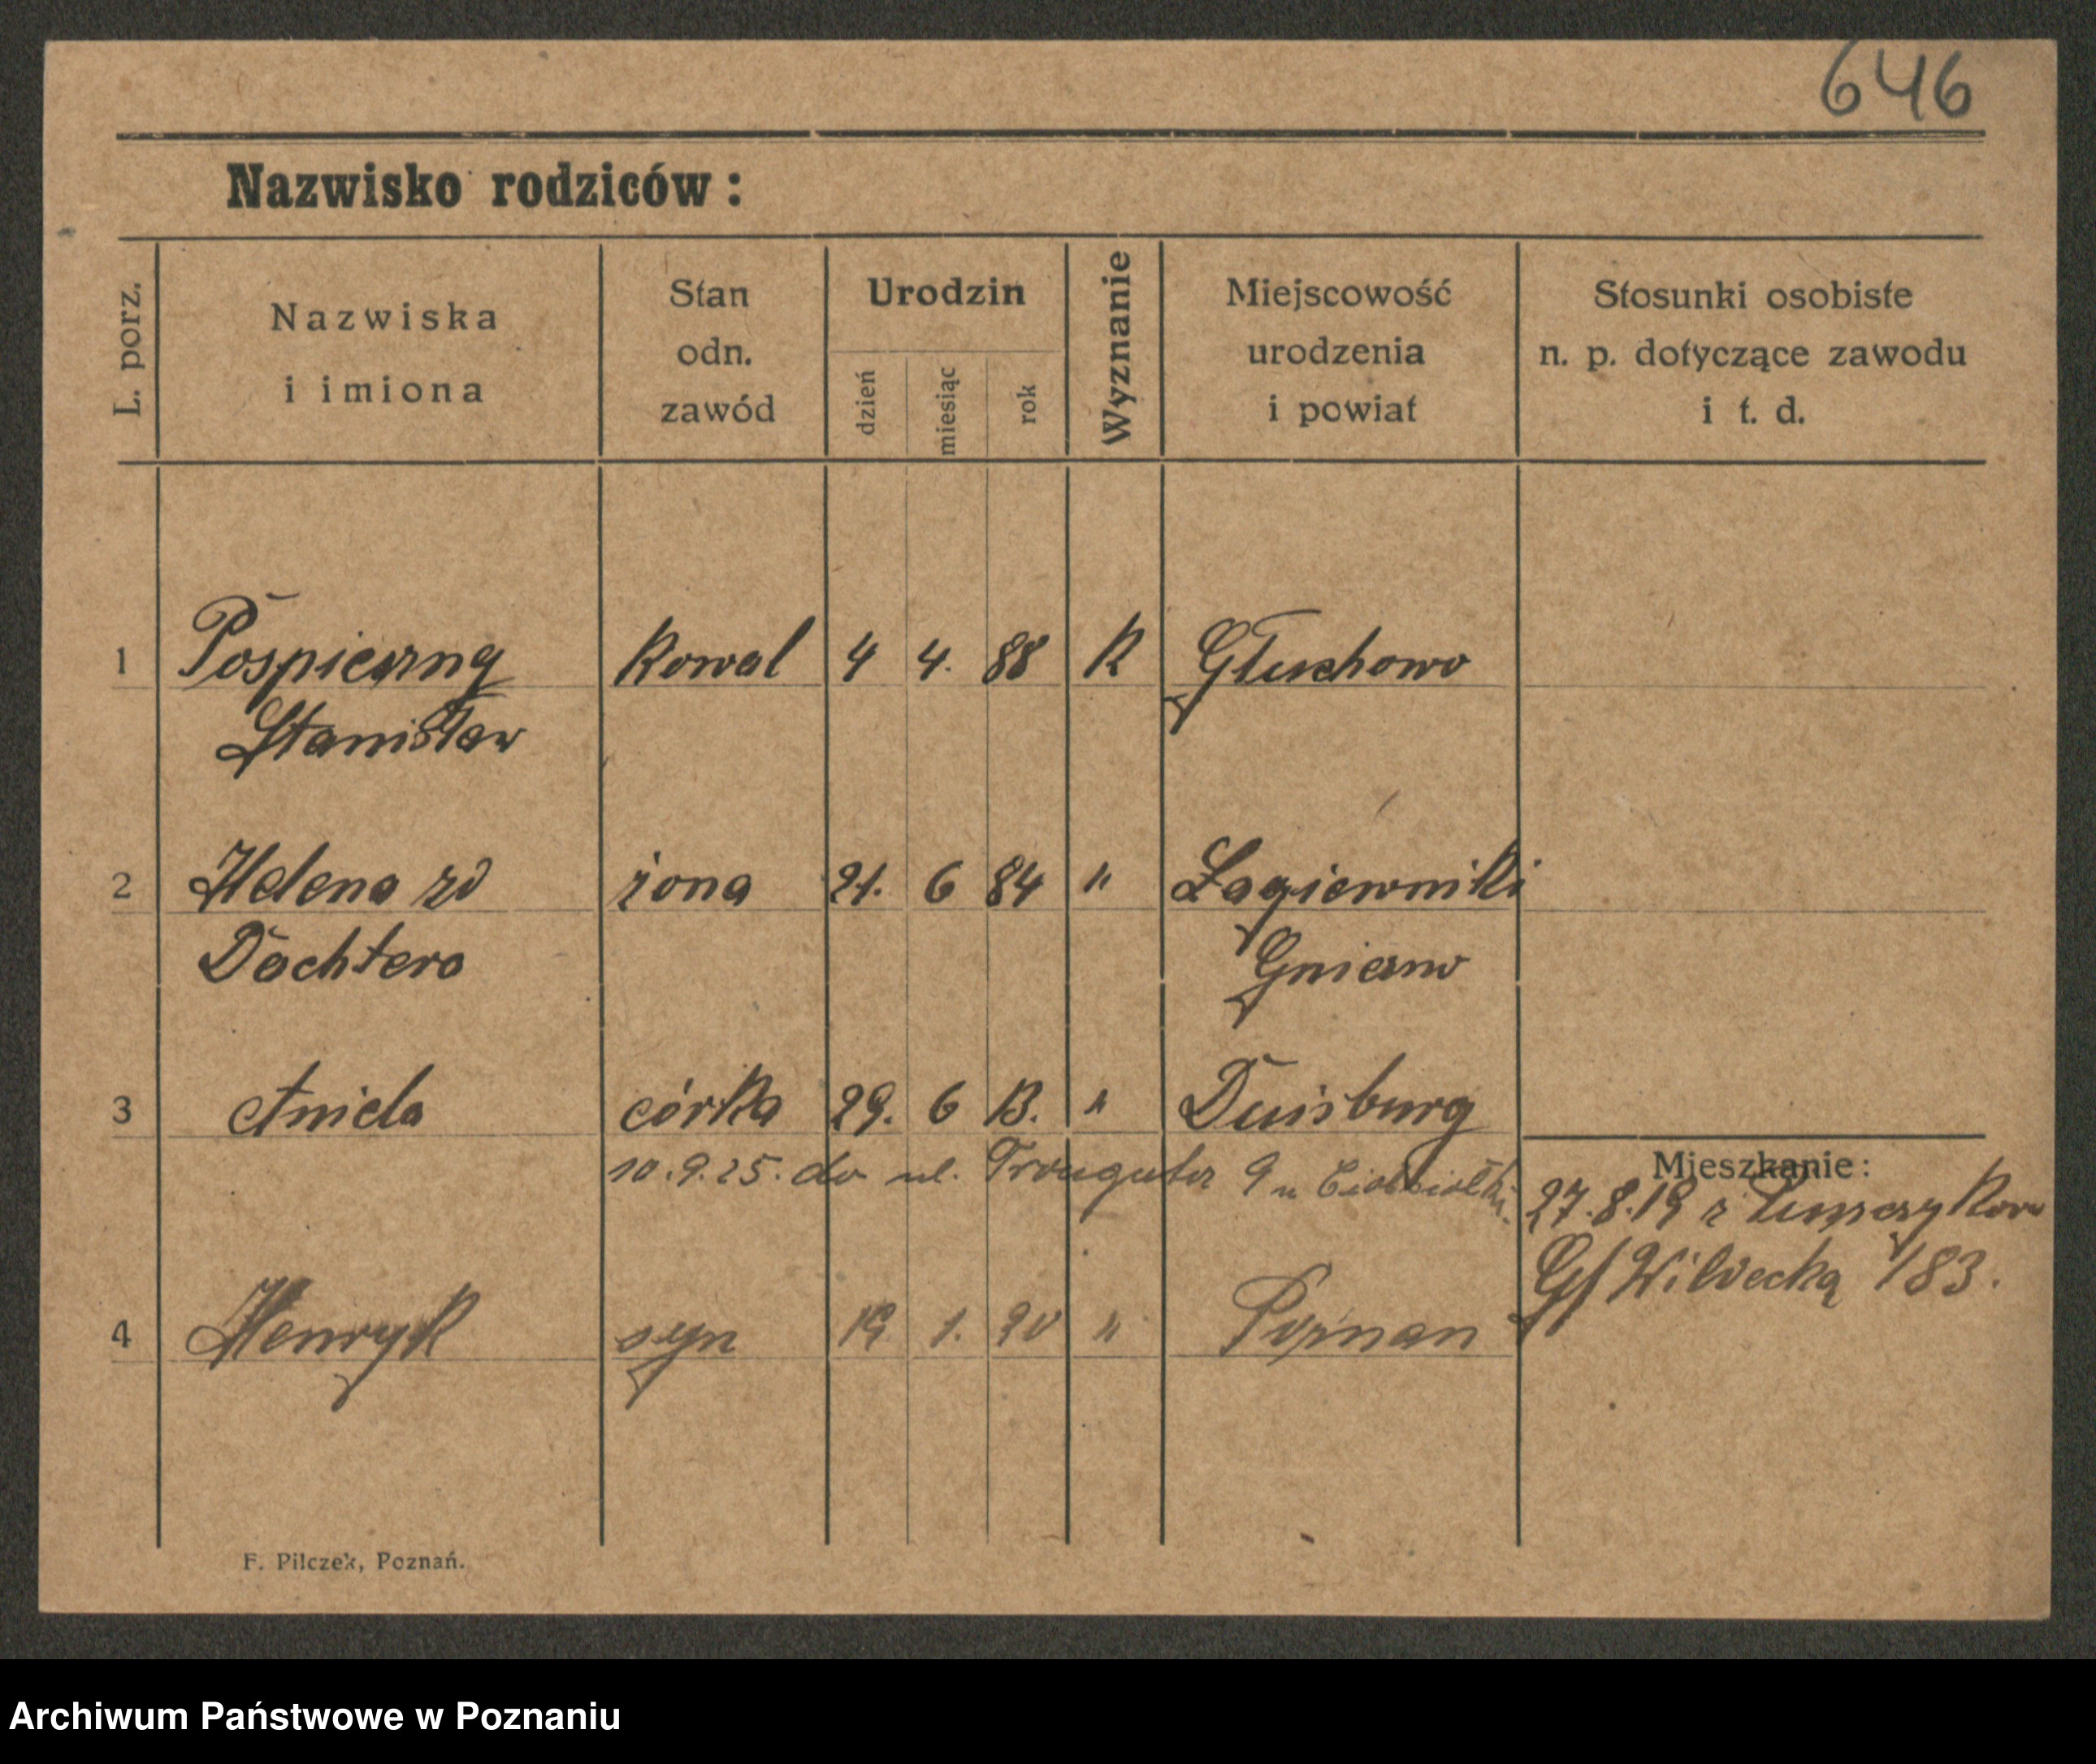 646
Nazwisko rodziców:
L. porz.
Nazwiska
i imiona
Stan
odn.
zawód
Urodzin
dzień
miesiąc
rok
Wyznanie
Miejscowość
urodzenia
i powiat
Stosunki osobiste
n. p. dotyczące zawodu
i t. d.
1 Pospieszny Kowal 4 4. 88 K Głuchowo
Stanisław
2 Helena zd żona 21. 6 84 " Łagiewniki
Dachtera Gniezno
3 Aniela córka 29. 6 13. " Duisburg
10.9.25. do ul. Trauguta 9 u
Mieszkanie:
27.8.19 z
G/Wildecką 183.
4 Henryk syn 19 1. 20 " Poznan
F. Pilczek, Poznań.
Archiwum Państwowe w Poznaniu